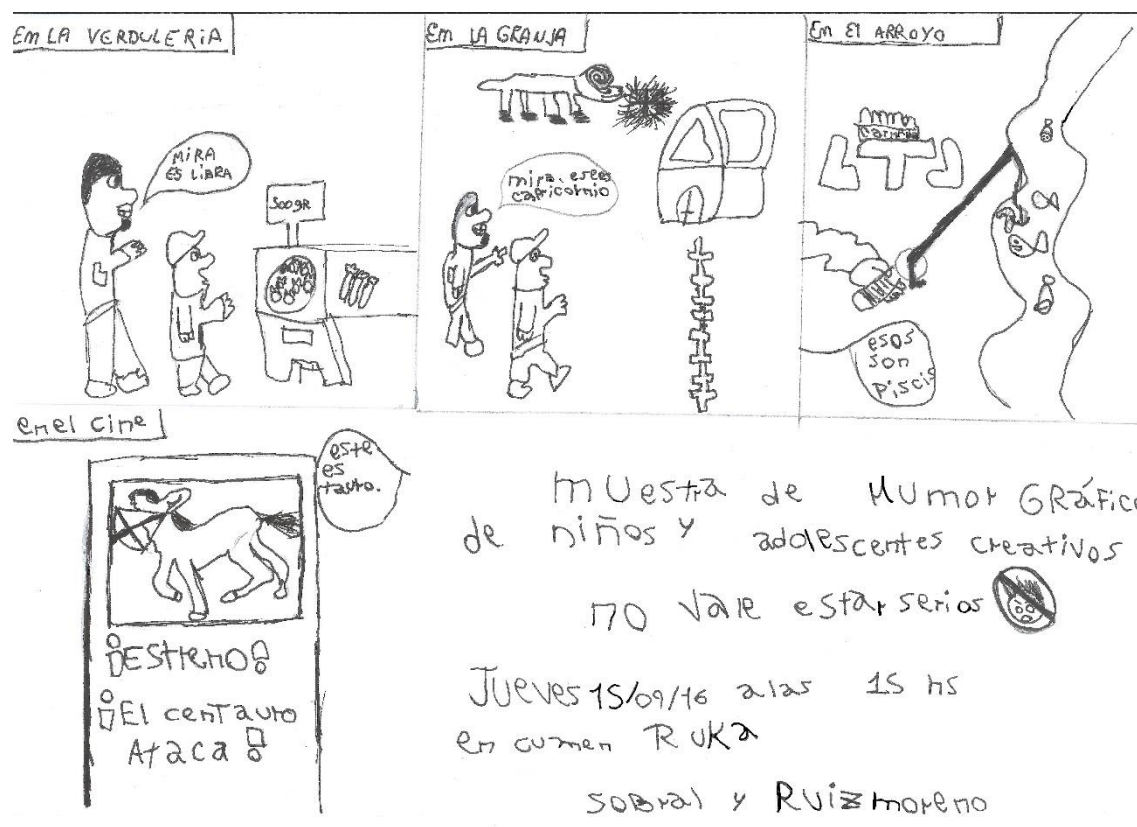 Em LA VERDULERIA
MiRA
ES LiBRA
500gR
Em LA GRANJA
mira, ese es
capricornio
En El ARROYO
esos
son
Piscis
en el cine
este
es
tauro.
¡EStreno!
¡El cenTauro
Ataca!
mUestra de HUmor GRáfico
de niños y adolescentes creativos
no vale estar serios
JUeves 15/09/16 a las 15 hs
en cumen RUKa
SOBral y RUiz moreno